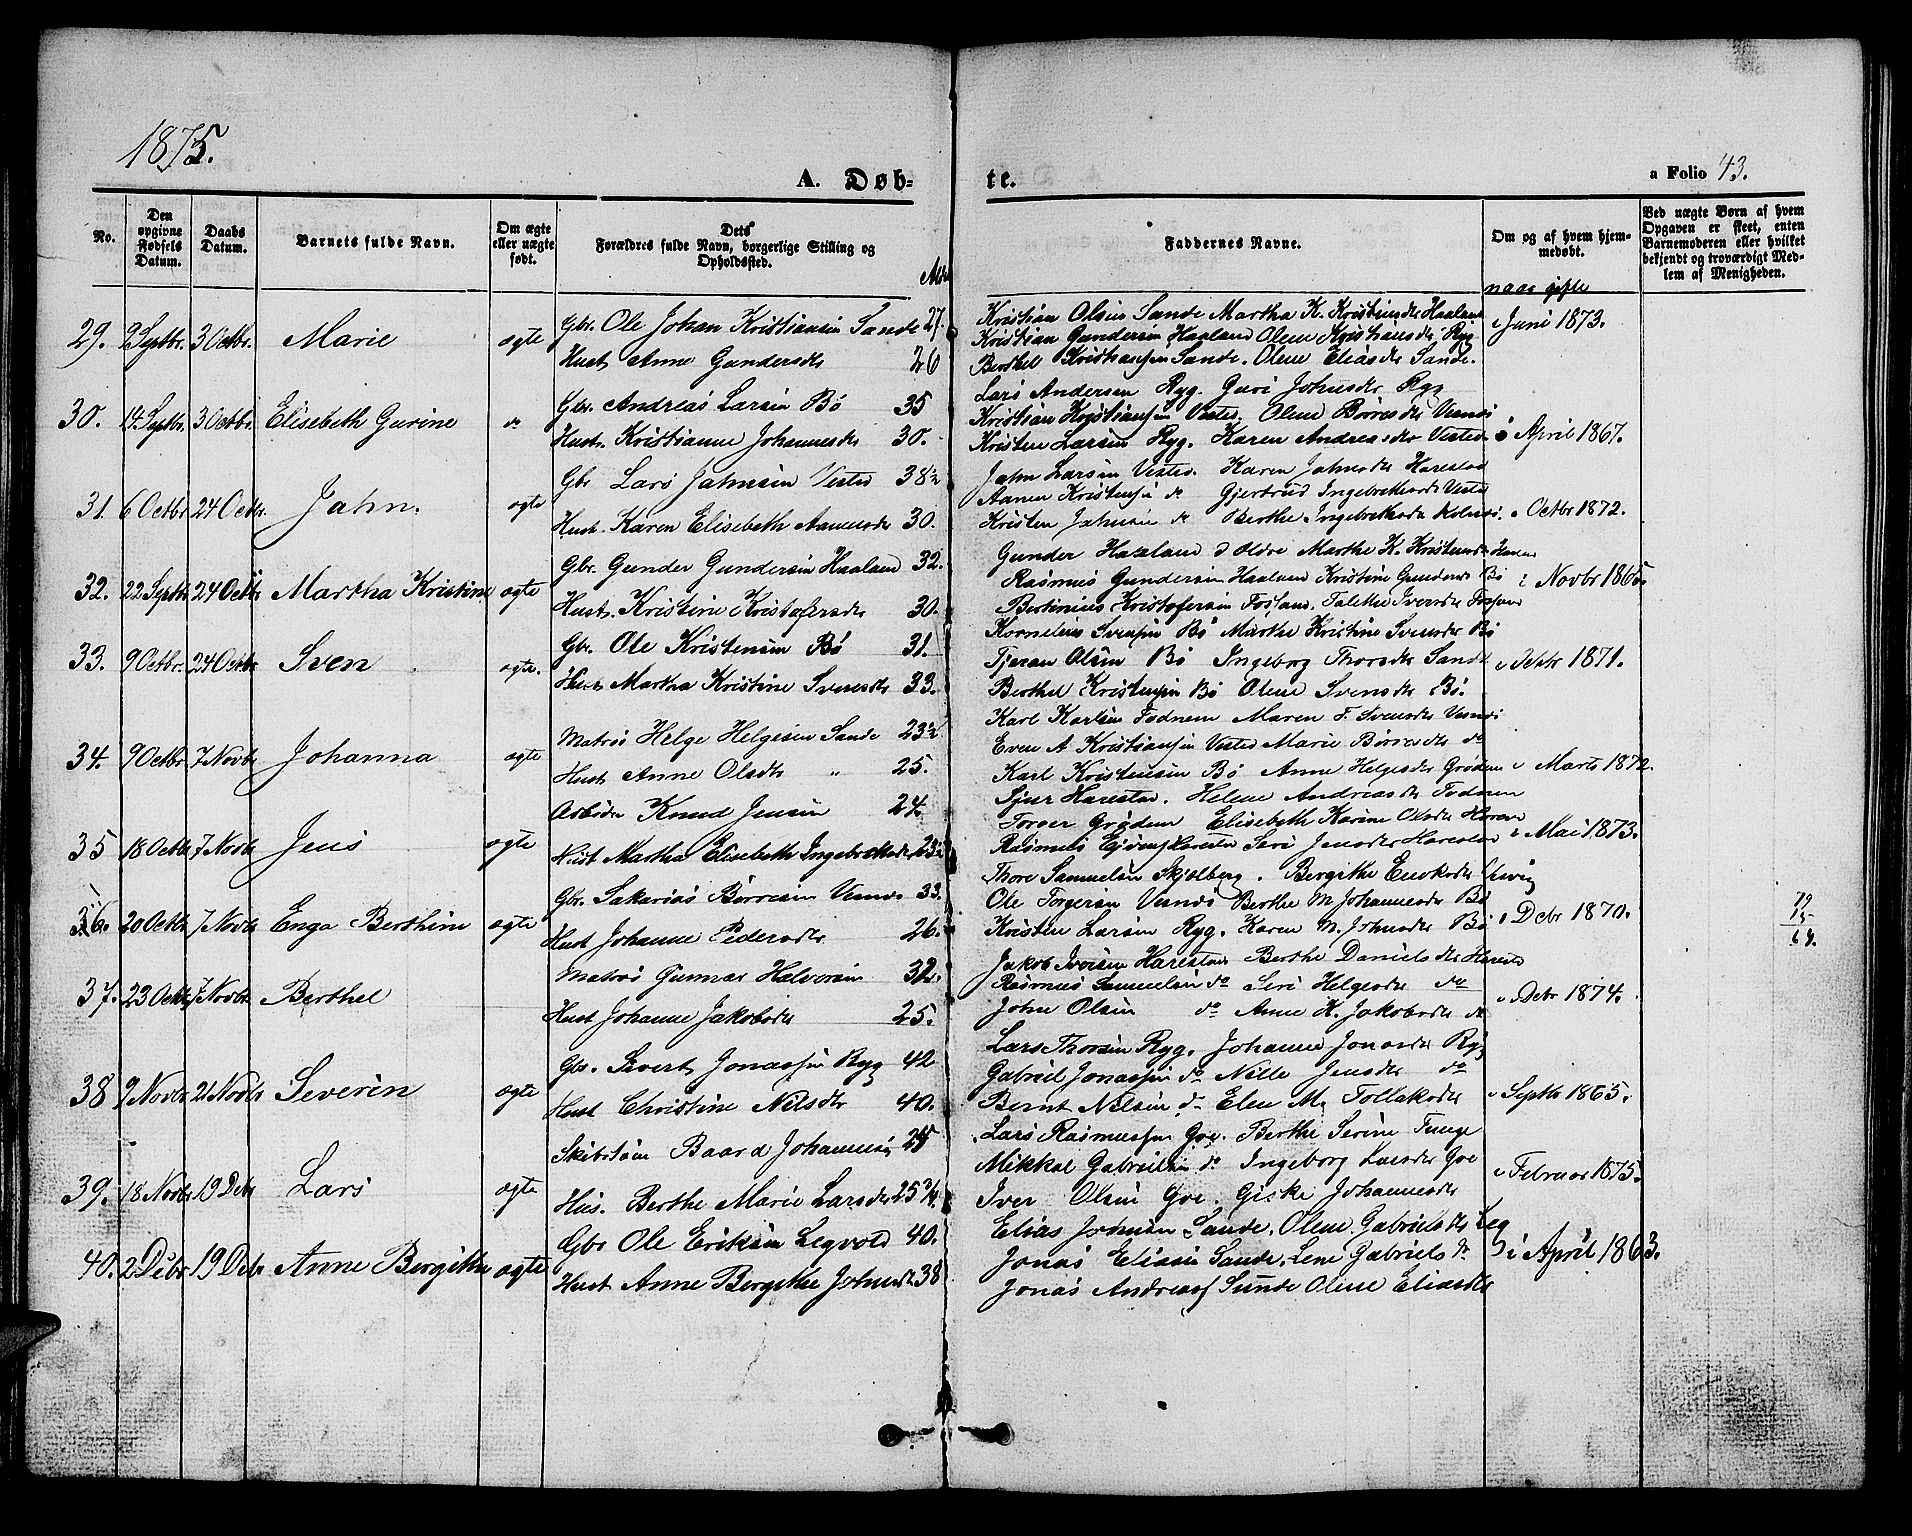 1875.
A. Døb-
te.
a Folio 43.
No.
Den opgivne Fødsels Datum.
Daabs Datum.
Barnets fulde Navn.
Om ægte eller uægte født.
Dets Forældres fulde Navn, borgerlige Stilling og Opholdssted.
Faddernes Navne.
Om og af hvem hjemmedøbt.
naar gifte
Ved uægte Børn af hvem Opgaven er skeet, enten Barnemoderen eller hvilket bekjendt og troværdigt Medlem af Menigheden.
29. 9 Septbr. 3 Octbr. Marie ægte
Gbr. Ole Johan Kristiansen Sande 27.
Hust. Anne Gundersdr 26
Kristian Olsen Sande Martha K. Kristensdr Haaland
Kristian Gundersen Haaland Olene Kristiansdr Ryg
Berthel Kristiansen Sande. Olene Eliasdr Sande.
i Juni 1873.
30. 14 Septbr. 3 Octbr. Elisebeth Gurine do
Gbr. Andreas Larsen Bø 35
Hust. Kristianne Johannesdr 30.
Lars Andersen Ryg. Guri Johnsdr Ryg
Kristian Kristiansen Vested. Olene Børresdr Visnæs
Kristen Larsen Ryg. Karen Andreasdr Vested
i April 1867.
31. 6 Octbr. 24 Octbr. Jahn. ægte
Gbr Lars Jahnsen Vested 38½
Hust. Karen Elisebeth Aanensdr 30.
Jahn Larsen Vested. Karen Jahnsdr Harestad
Aanen Kristensen do Gjertrud Ingebrethsdr Vested
Kristen Jahnsen do Berthe Ingebrethsdr
i Octbr 1872.
32. 22 Septbr 24 Octbr Martha Kristine ægte
Gbr. Gunder Gundersen Haaland 32.
Hust. Kristine Kristofersdr 30.
Gunder Haaland d Oldre Marthe K. Kristensdr
Rasmus Gundersen Haaland Kristine Gundersdr Bø
Bertinius Kristofersen Fosand. Talette Iversdr Fosand
i Novbr 1865.
33. 9 Octbr. 24 Octbr Sven ægte.
Gbr. Ole Kristensen Bø 31.
Hust Martha Kristine Svensdr 33.
Kornelius Svensen Bø Marthe Kristine Svensdr Bø
Tjeran Olsen Bø Ingeborg Thorsdr Sande
Berthel Kristensen Bø Olene Svensdr Bø.
i Octbr 1871.
34. 9 Octbr 7 Novbr Johanna ægte
Matros Helge Helgesen Sande 23½
Hust Anne Olsdr " 25.
Karl Karlsen Todnem Maren F. Svensdr Visnæs
Even A Kristiansen Vested Marie Børresdr do
Karl Kristensen Bø Anne Helgesdr Grødem
i Marts 1872.
35 18 Octbr 7 Novbr Jens ægte
Arbeider Knud Jensen 24.
Hust Martha Elisebeth Ingebrethsdr 23½
Sjur Harestad. Helene Andreasdr Todnem
Torger Grødem Elisebeth Karine Olsdr Harestad
Rasmus Harestad Seri Jensdr Harestad
i Mai 1873.
36. 20 Octbr 7 Novbr Enga Berthine ægte
Gbr. Sakarias Børresen Visnæs 33.
Hust Johanne Pedersdr 26.
Thore Samuelsen Skjølberg. Bergithe Enoksdr
Ole Torgersen Visnæs Berthe M Johannesdr Bø
Kristen Larsen Ryg. Karen M. Johnsdr Bø
i Decbr 1870.
79
15
64.
37. 23 Octbr 7 Novbr Berthel
Matros Gunnar Halvorsen 32.
Hust Johanne Jakobsdr 25.
Jakob Iversen Harestad Berthe Danielsdr Harestad
Rasmus Samuelsen do Seri Helgesdr do
John Olsen do Anne K. Jakobsdr do
i Decbr 1874.
38 9 Novbr 21 Novbr Severin ægte
Gbr. Sivert Jonassen Ryg 42
Hust Christine Nilsdr 40.
Lars Thorsen Ryg. Johanne Jonasdr Ryg
Gabriel Jonassen do Nille Jensdr do
Bernt Nilsen do Elen M. Tollaksdr
i Septbr 1865.
39. 18 Novbr 19 Debr Lars ægte
Skibstøm Baard Johannesen 25
Hus. Berthe Marie Larsdr 25¾.
Lars Rasmussen Goe. Berthe Serine Tunge
Mikkal Gabrielsen do Ingeborg Larsdr Goe
Iver Olsen Goe. Giske Johannesdr
i Februar 1875.
40. 2 Debr 19 Debr Anne Bergithe ægte
Gbr Ole Eriksen Legvold 40.
Hust Anne Bergithe Johnsdr 38
Elias Johnsen Sande. Olene Gabrielsdr Leg
Jonas Eliasen Sande. Lene Gabrielsdr
Jonas Andreas Sunde Olene Eliasdr
i April 1863.